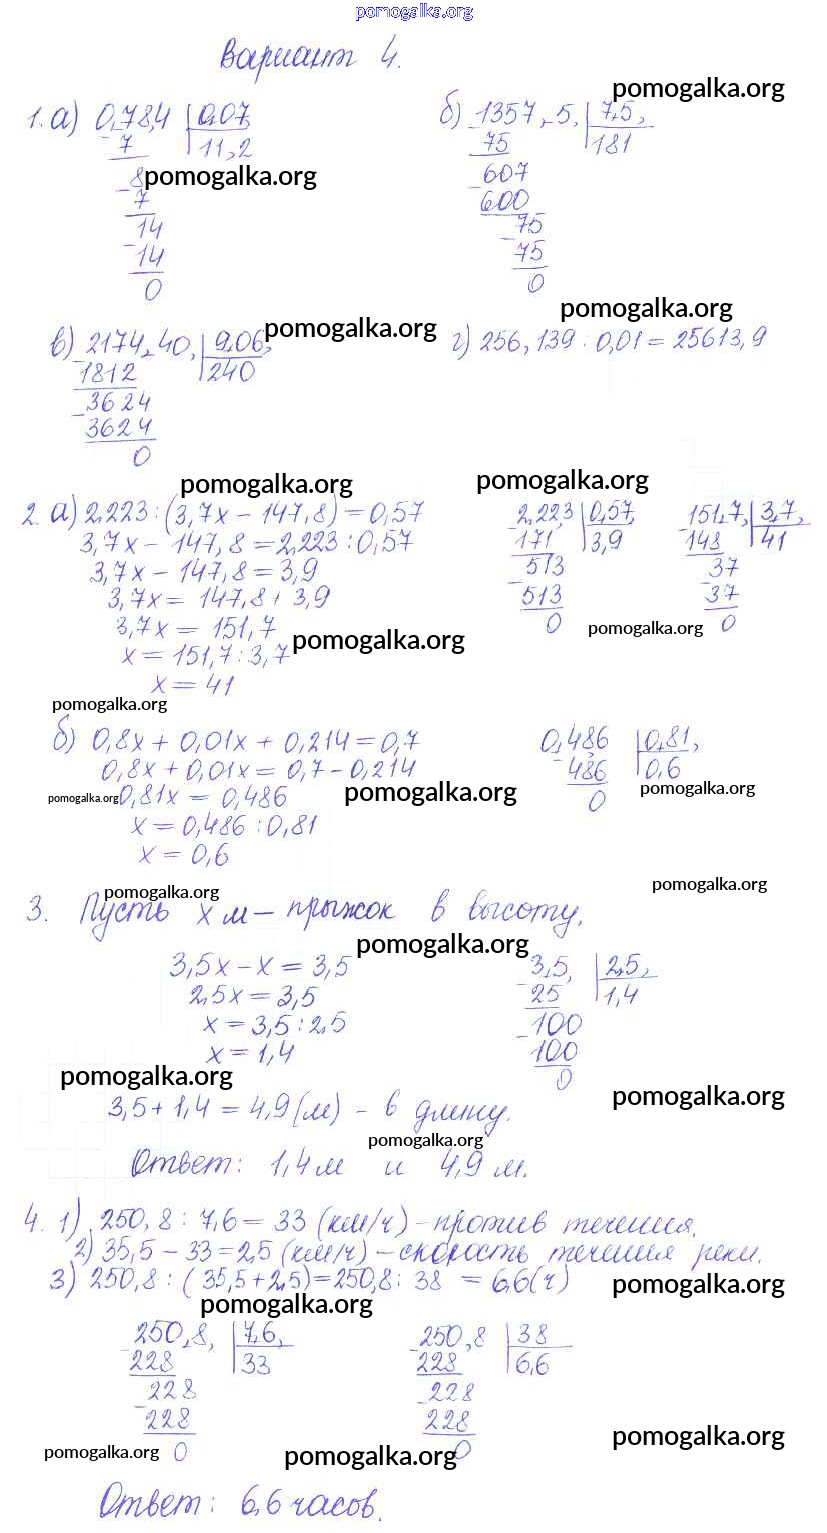 pomogalka.org
Вариант 4.
pomogalka.org
1. а) 0,78,4 | 0,07, б) 1357,5, | 7,5,
7 11,2 75 181
8 pomogalka.org 607
7 600
14 75
14 75
0 0
pomogalka.org
в) 2174,40, | 9,06, pomogalka.org г) 256,139 : 0,01 = 25613,9
1812 240
3624
3624
0
pomogalka.org pomogalka.org
2. а) 2,223 : (3,7х - 147,8) = 0,57 2,22,3 | 0,57, 151,7, | 3,7,
3,7х - 147,8 = 2,223 : 0,57 171 3,9 148 41
3,7х - 147,8 = 3,9 513 37
3,7х = 147,8 + 3,9 513 37
3,7х = 151,7 0 pomogalka.org 0
х = 151,7 : 3,7 pomogalka.org
х = 41
pomogalka.org
б) 0,8х + 0,01х + 0,214 = 0,7 0,486 | 0,81,
0,8х + 0,01х = 0,7 - 0,214 486 0,6
pomogalka.org 0,81х = 0,486 pomogalka.org 0 pomogalka.org
х = 0,486 : 0,81
х = 0,6
pomogalka.org pomogalka.org
3. Пусть х м - прыжок в высоту.
pomogalka.org
3,5х - х = 3,5 3,5, | 2,5,
2,5х = 3,5 25 1,4
х = 3,5 : 2,5 100
х = 1,4 100
pomogalka.org 0
pomogalka.org
3,5 + 1,4 = 4,9 (м) - в длину.
pomogalka.org
Ответ: 1,4 м и 4,9 м.
4. 1) 250,8 : 7,6 = 33 (км/ч) - против течения.
2) 35,5 - 33 = 2,5 (км/ч) - скорость течения реки.
3) 250,8 : (35,5 + 2,5) = 250,8 : 38 = 6,6 (ч)
pomogalka.org pomogalka.org
250,8, | 7,6, 250,8 | 38
228 33 228 6,6
228 228
228 228
pomogalka.org 0 pomogalka.org 0 pomogalka.org
Ответ: 6,6 часов.